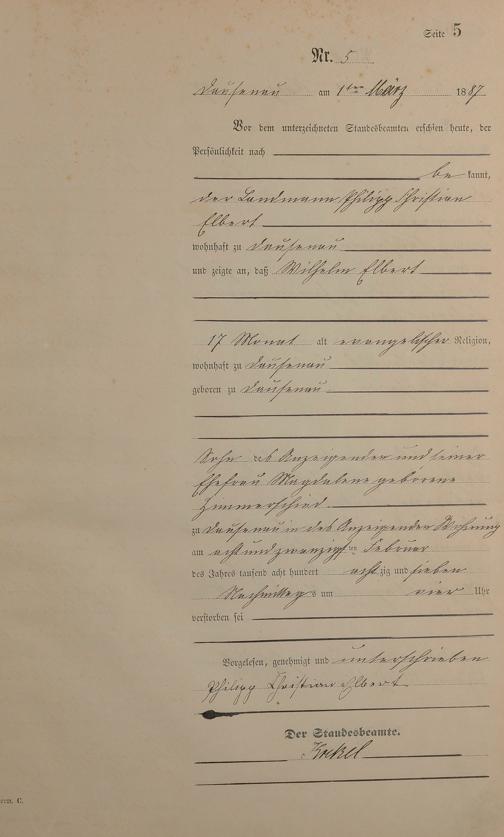 Seite 5
Nr. 5
Dausenau am 1ten März 1887
Vor dem unterzeichneten Standesbeamten erschien heute, der
Persönlichkeit nach
be kannt,
der Landmann Philipp Christian
Elbert
wohnhaft zu Dausenau
und zeigte an, daß Wilhelm Elbert
17 Monat alt evangelischer Religion,
wohnhaft zu Dausenau
geboren zu Dausenau
Sohn des Anzeigenden und seiner
Ehefrau Magdalene geborene
Zimmerschied
zu Dausenau in des Anzeigenden Wohnung
am acht und zwanzigsten Februar
des Jahres tausend acht hundert achtzig und sieben
Nachmittags um vier Uhr
verstorben sei
Vorgelesen, genehmigt und unterschrieben
Philipp Christian Elbert
Der Standesbeamte.
C.